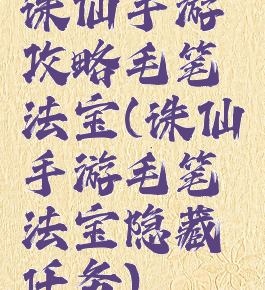 诛仙手游
攻略毛笔
法宝(诛仙
手游毛笔
法宝隐藏
任务)